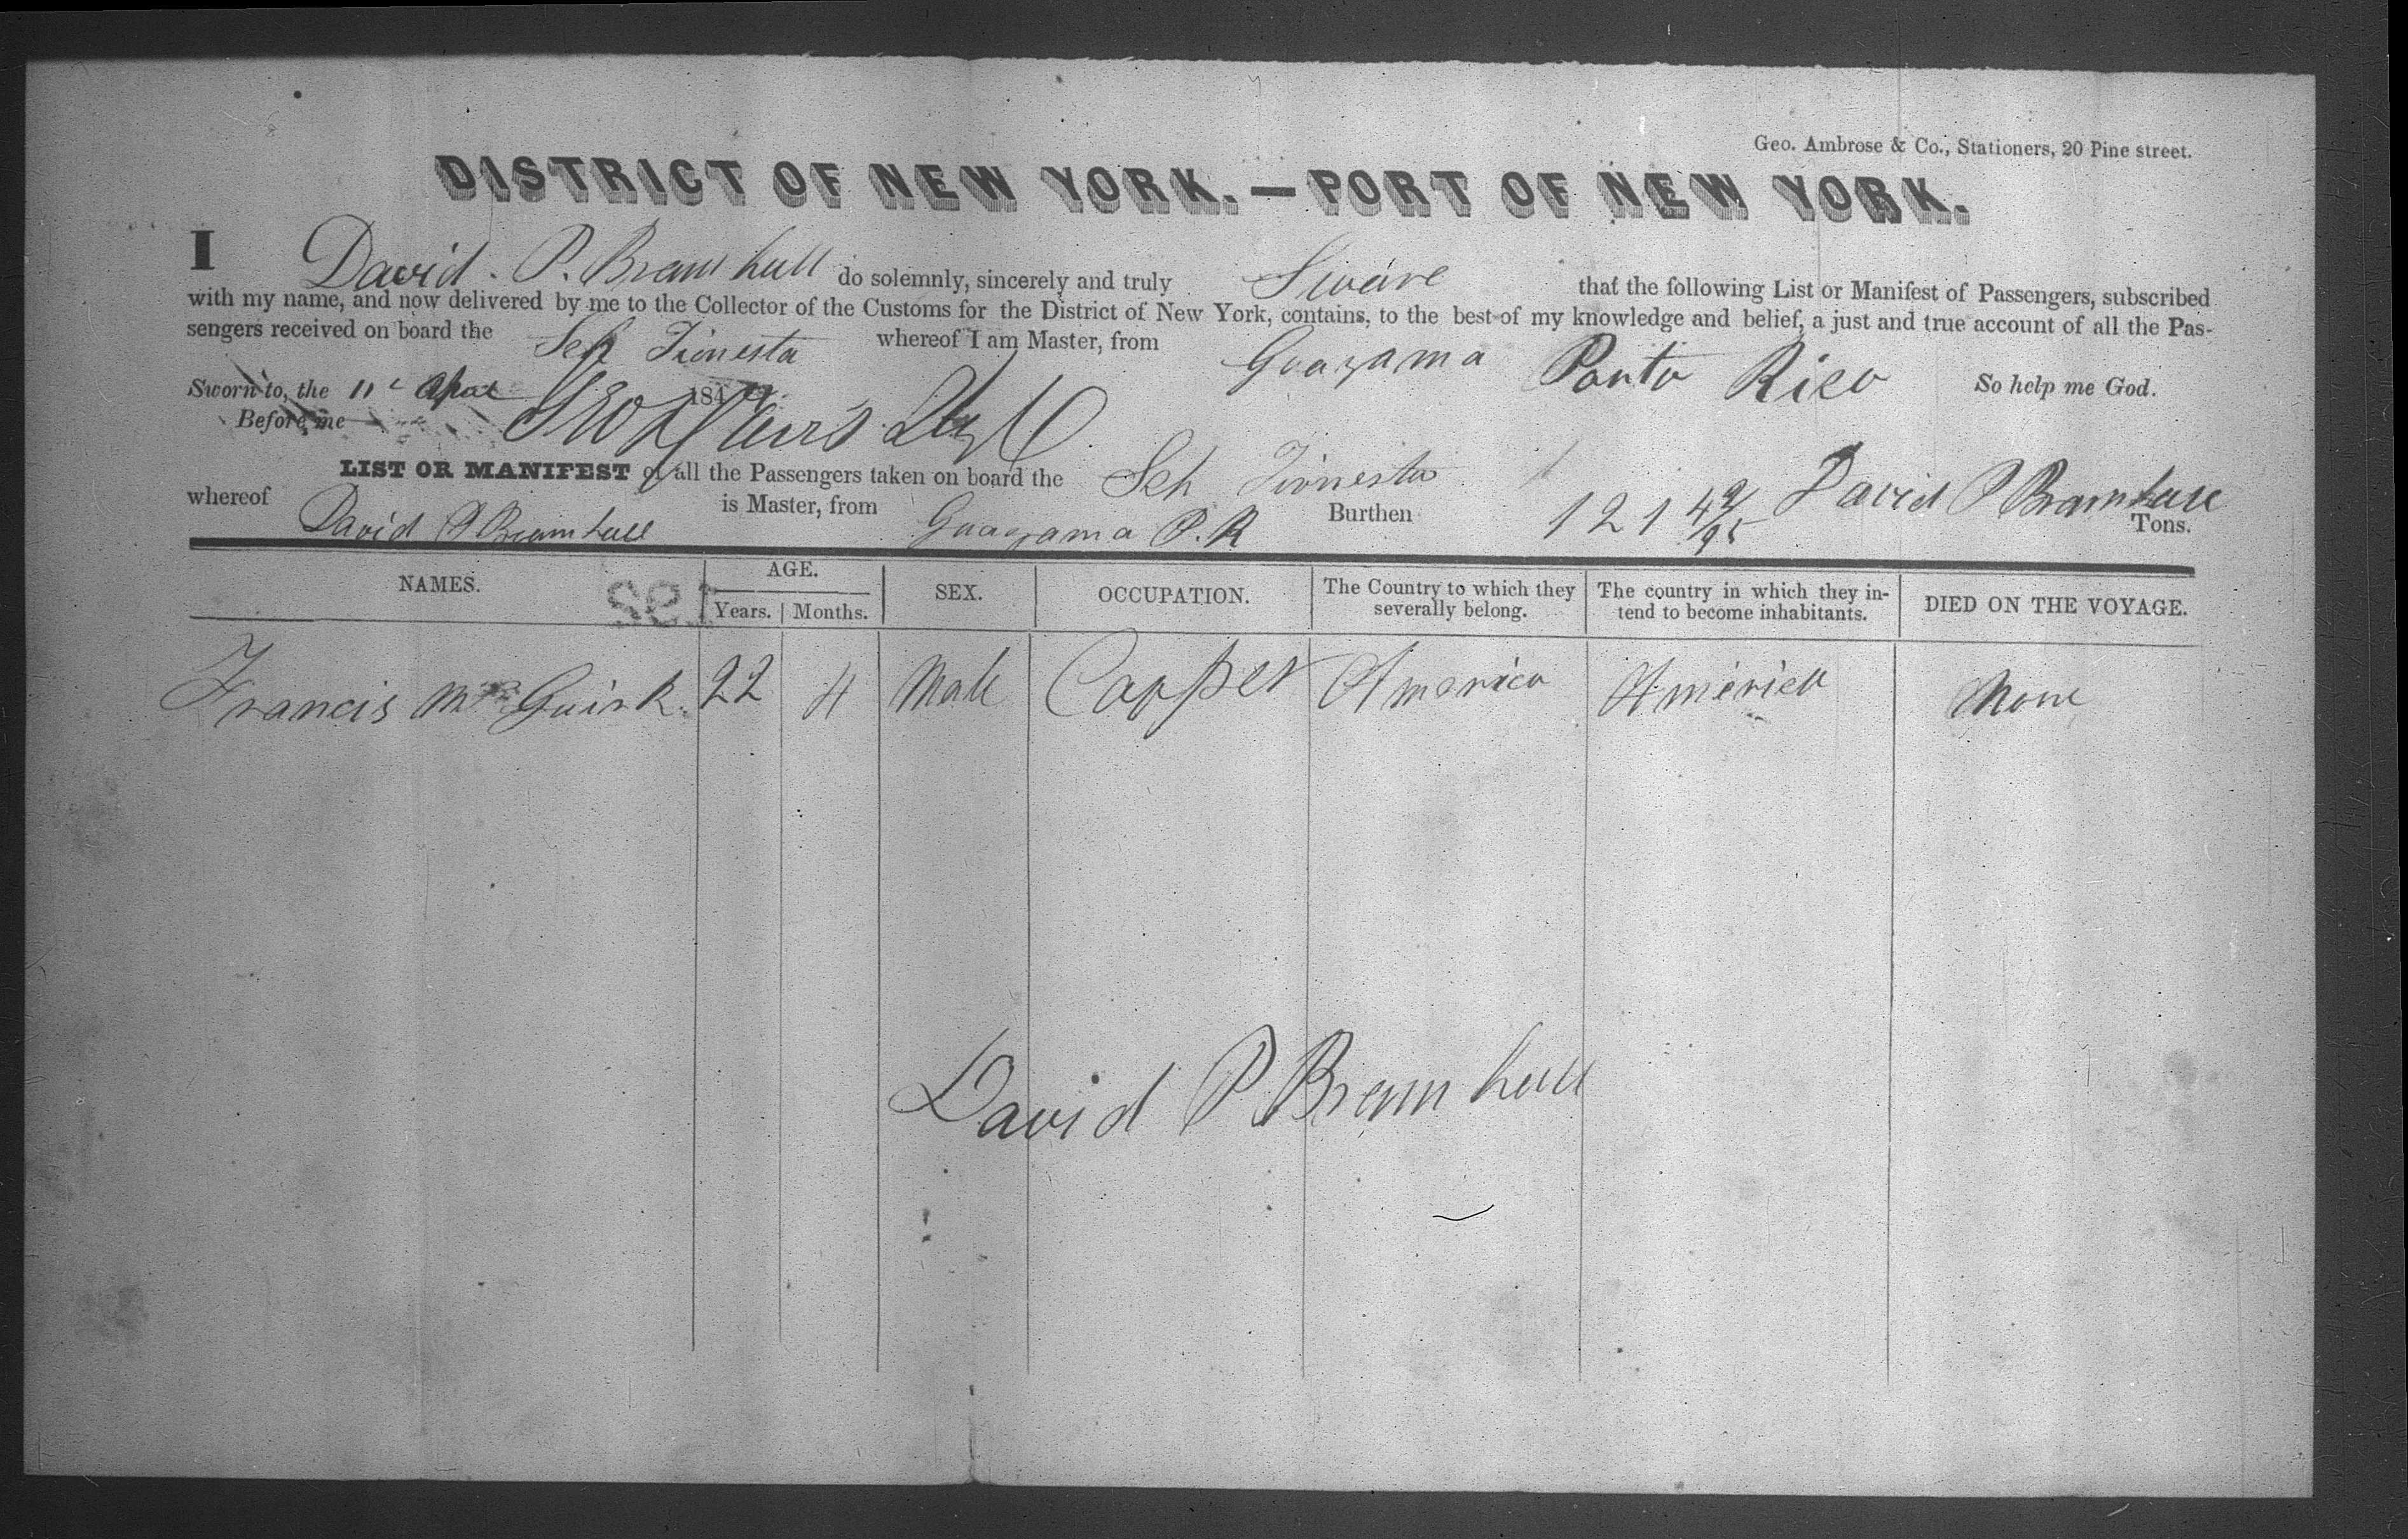 Geo. Ambrose & Co., Stationers, 20 Pine street.
DISTRICT OF NEW YORK.—PORT OF NEW YORK.
I David. P. Bramhall do solemnly, sincerely and truly Sweare that the following List or Manifest of Passengers, subscribed
with my name, and now delivered by me to the Collector of the Customs for the District of New York, contains, to the best of my knowledge and belief, a just and true account of all the Pas-
sengers received on board the Sch Tionesta whereof I am Master, from Guayama Porto Rico So help me God.
Sworn to, the 11 184
Before me
LIST OR MANIFEST of all the Passengers taken on board the Sch Tionesta
whereof David P Bramhall is Master, from Guayama P. R Burthen 121 42/95 Tons. David P Bramhall
NAMES. AGE. SEX. OCCUPATION. The Country to which they severally belong. The country in which they in-tend to become inhabitants. DIED ON THE VOYAGE.
Years. Months.
Francis Mc Guirk. 22 4 Male Copper America America None
David P Bramhall